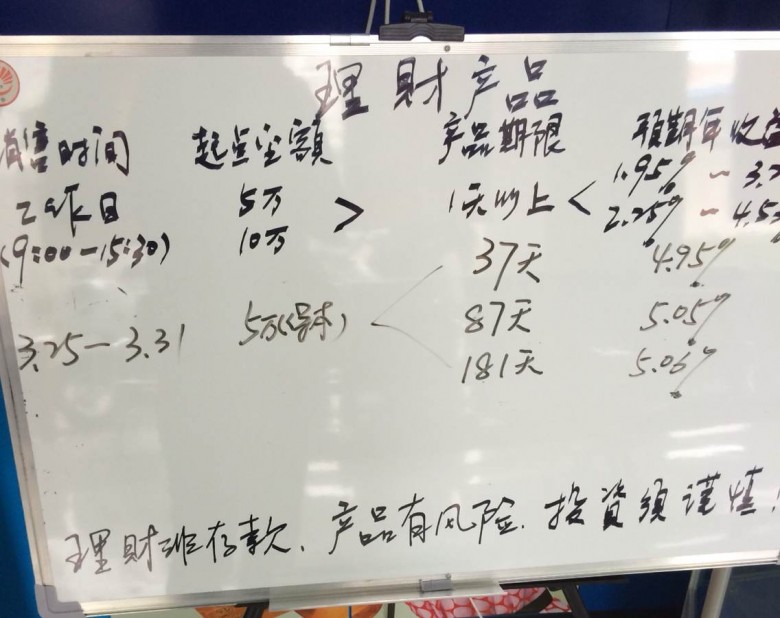 理财产品
销售时间 起点金额 产品期限 预期年收益
工作日 5万 > 1天以上 < 1.95% - 3.
(9:00-15:30) 10万 2.25% - 4.5
37天 4.95%
3.25-3.31 5万(保本) 87天 5.05%
181天 5.06%
理财非存款、产品有风险、投资须谨慎!